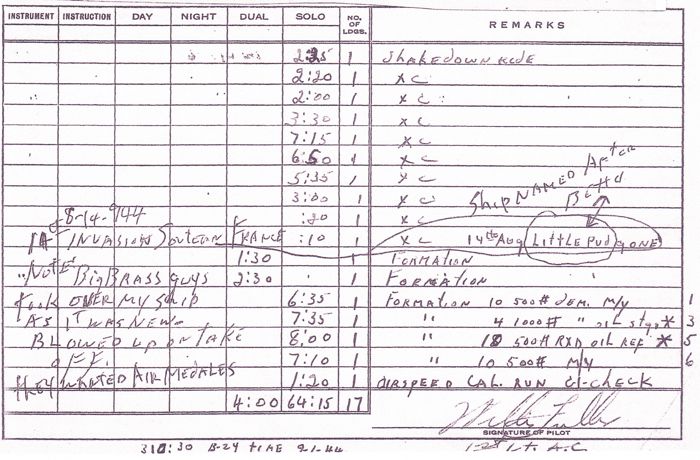 INSTRUMENT INSTRUCTION DAY NIGHT DUAL SOLO NO. OF LDGS. REMARKS
2:25 1 Shakedown ride
2:20 1 XC
2:00 1 XC
3:30 1 XC
7:15 1 XC
6:50 1 XC
5:35 1 XC
3:00 1 XC Ship NAMED After Betty
8-14-944 :20 1 XC
INVASION Southern FRANCE :10 1 XC 14th Aug Little Pud gone
1:30 1 FORMATION
"Note" Big BRASS guys 2:30 1 FORMATION
took OVER MY ship 6:35 1 FORMATION 10 500# dem. M/Y 1
AS IT WAS NEW 7:35 1 " 4 1000# " oil * 3
BLOWED up on TAKE 8:00 1 " 18 500# RXD oil REF * 5
OFF. 7:10 1 " 10 500# M/Y 6
they WANTED AIR MEDALES 1:20 1 AIRSPEED CAL. RUN CI-CHECK
4:00 64:15 17
SIGNATURE OF PILOT
310:30 B-24 time 9-1-44 1st Lt. A.C